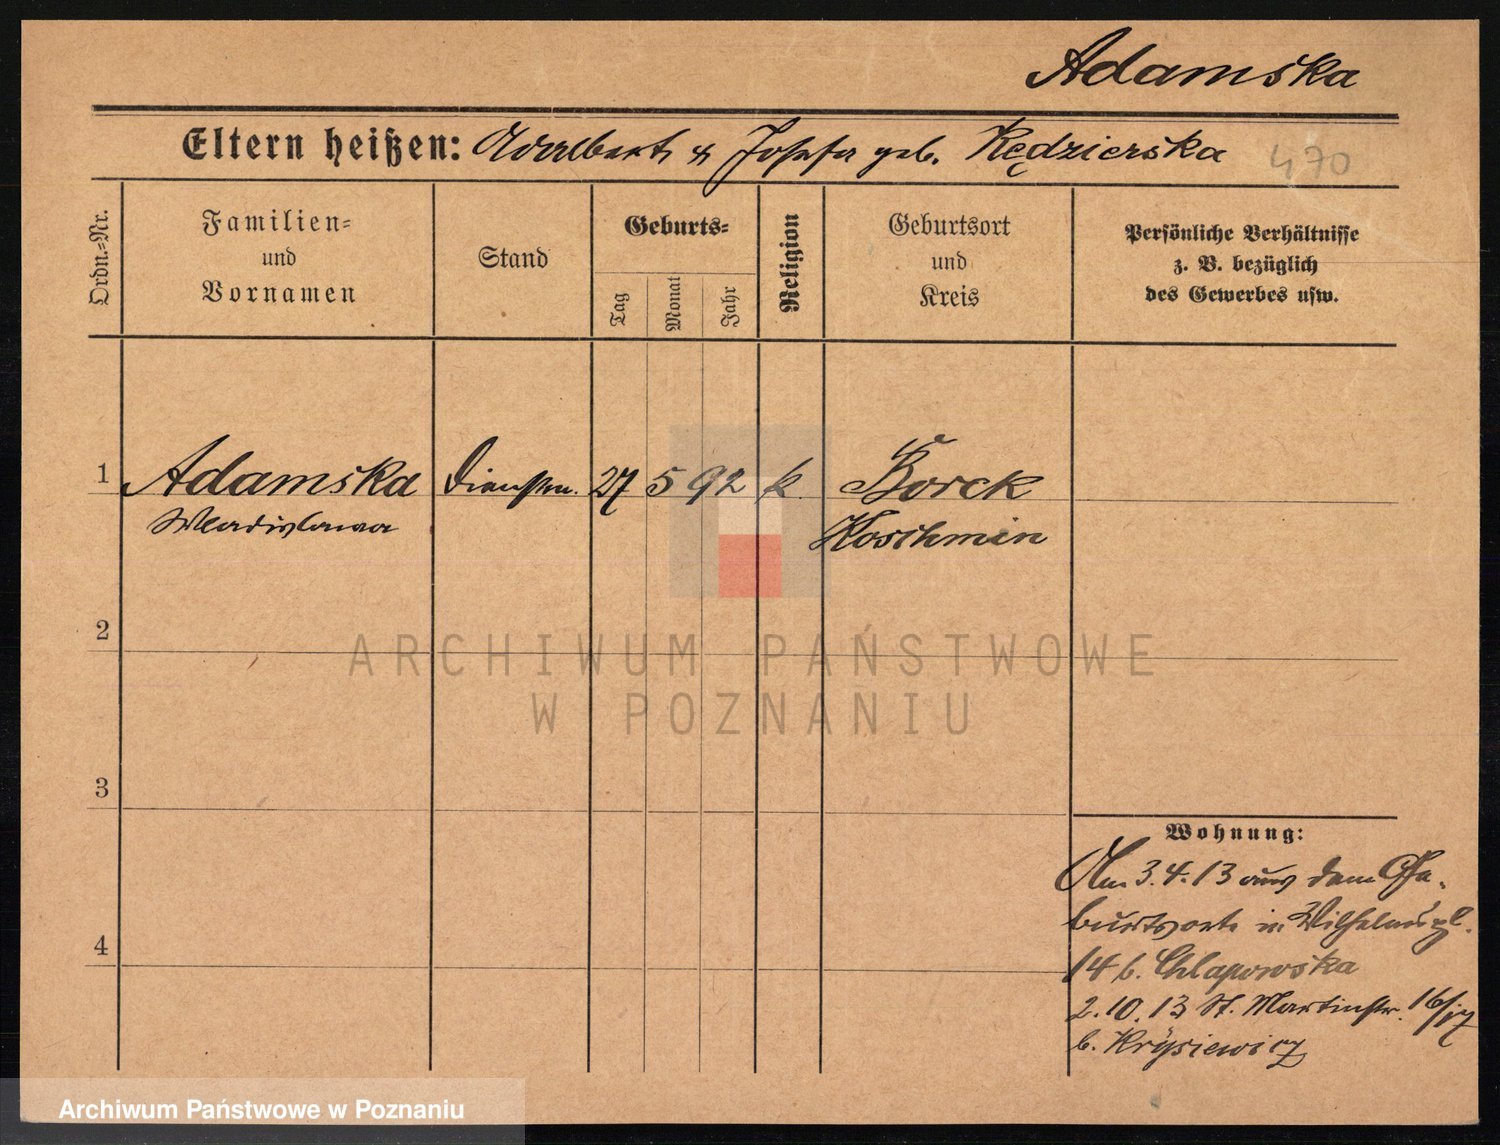 Adamska
Eltern heißen: Adalbert & Josefa geb. Kędzierska 470
Ordn.=Nr.
Familien=
und
Vornamen
Stand
Geburts=
Tag
Monat
Jahr
Religion
Geburtsort
und
Kreis
Persönliche Verhältnisse
z. B. bezüglich
des Gewerbes usw.
1 Adamska Dienstm. 27 5 92 k. Borek
Wladislawa Koschmin
2
ARCHIWUM PAŃSTWOWE
W POZNANIU
3
Wohnung:
Am 3.4.13 aus dem Ge-
burtsorte in Wilhelmspl.
4
14 b. Chlapowska
2.10.13 St. Martinstr. 16/17
b. Krysiewicz
Archiwum Państwowe w Poznaniu